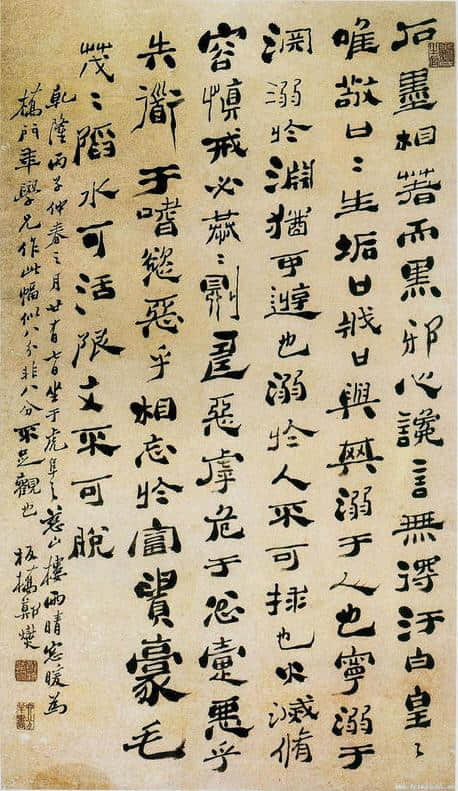 石墨相著而黑邪心讒言無得汙白皇〻
唯敬口〻生垢口戕口與其溺于人也寧溺于
淵溺於淵猶可遊也溺於人不可救也火滅脩
容慎戒必恭〻則壽惡虖危于忿疐惡乎
失道于嗜慾惡乎相忘於富貴豪毛
茂〻陷水可活陷文不可脫
乾隆丙子仲春之月廿有七日坐于虎阜之山樓雨晴窓暖為
門年學兄作此幅似八分非八分不足觀也 板橋鄭燮